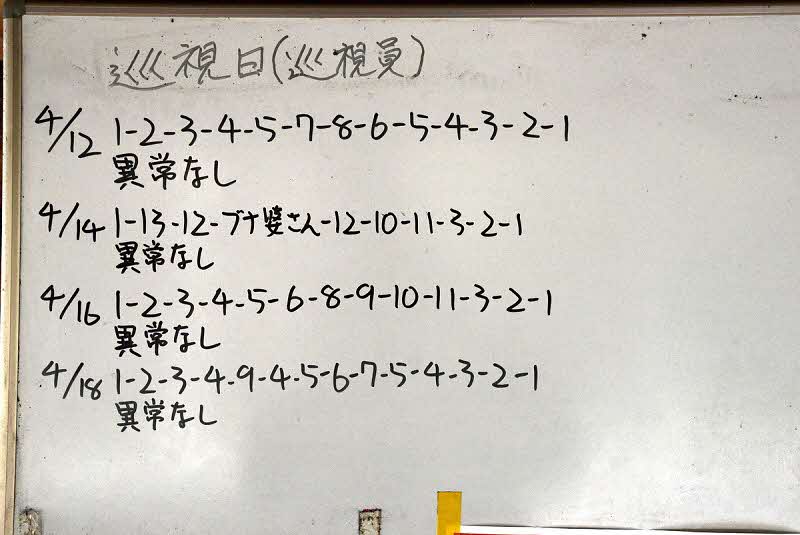 巡視日(巡視員)
4/12 1-2-3-4-5-7-8-6-5-4-3-2-1
異常なし
4/14 1-13-12-ブナ婆さん-12-10-11-3-2-1
異常なし
4/16 1-2-3-4-5-6-8-9-10-11-3-2-1
異常なし
4/18 1-2-3-4-9-4-5-6-7-5-4-3-2-1
異常なし